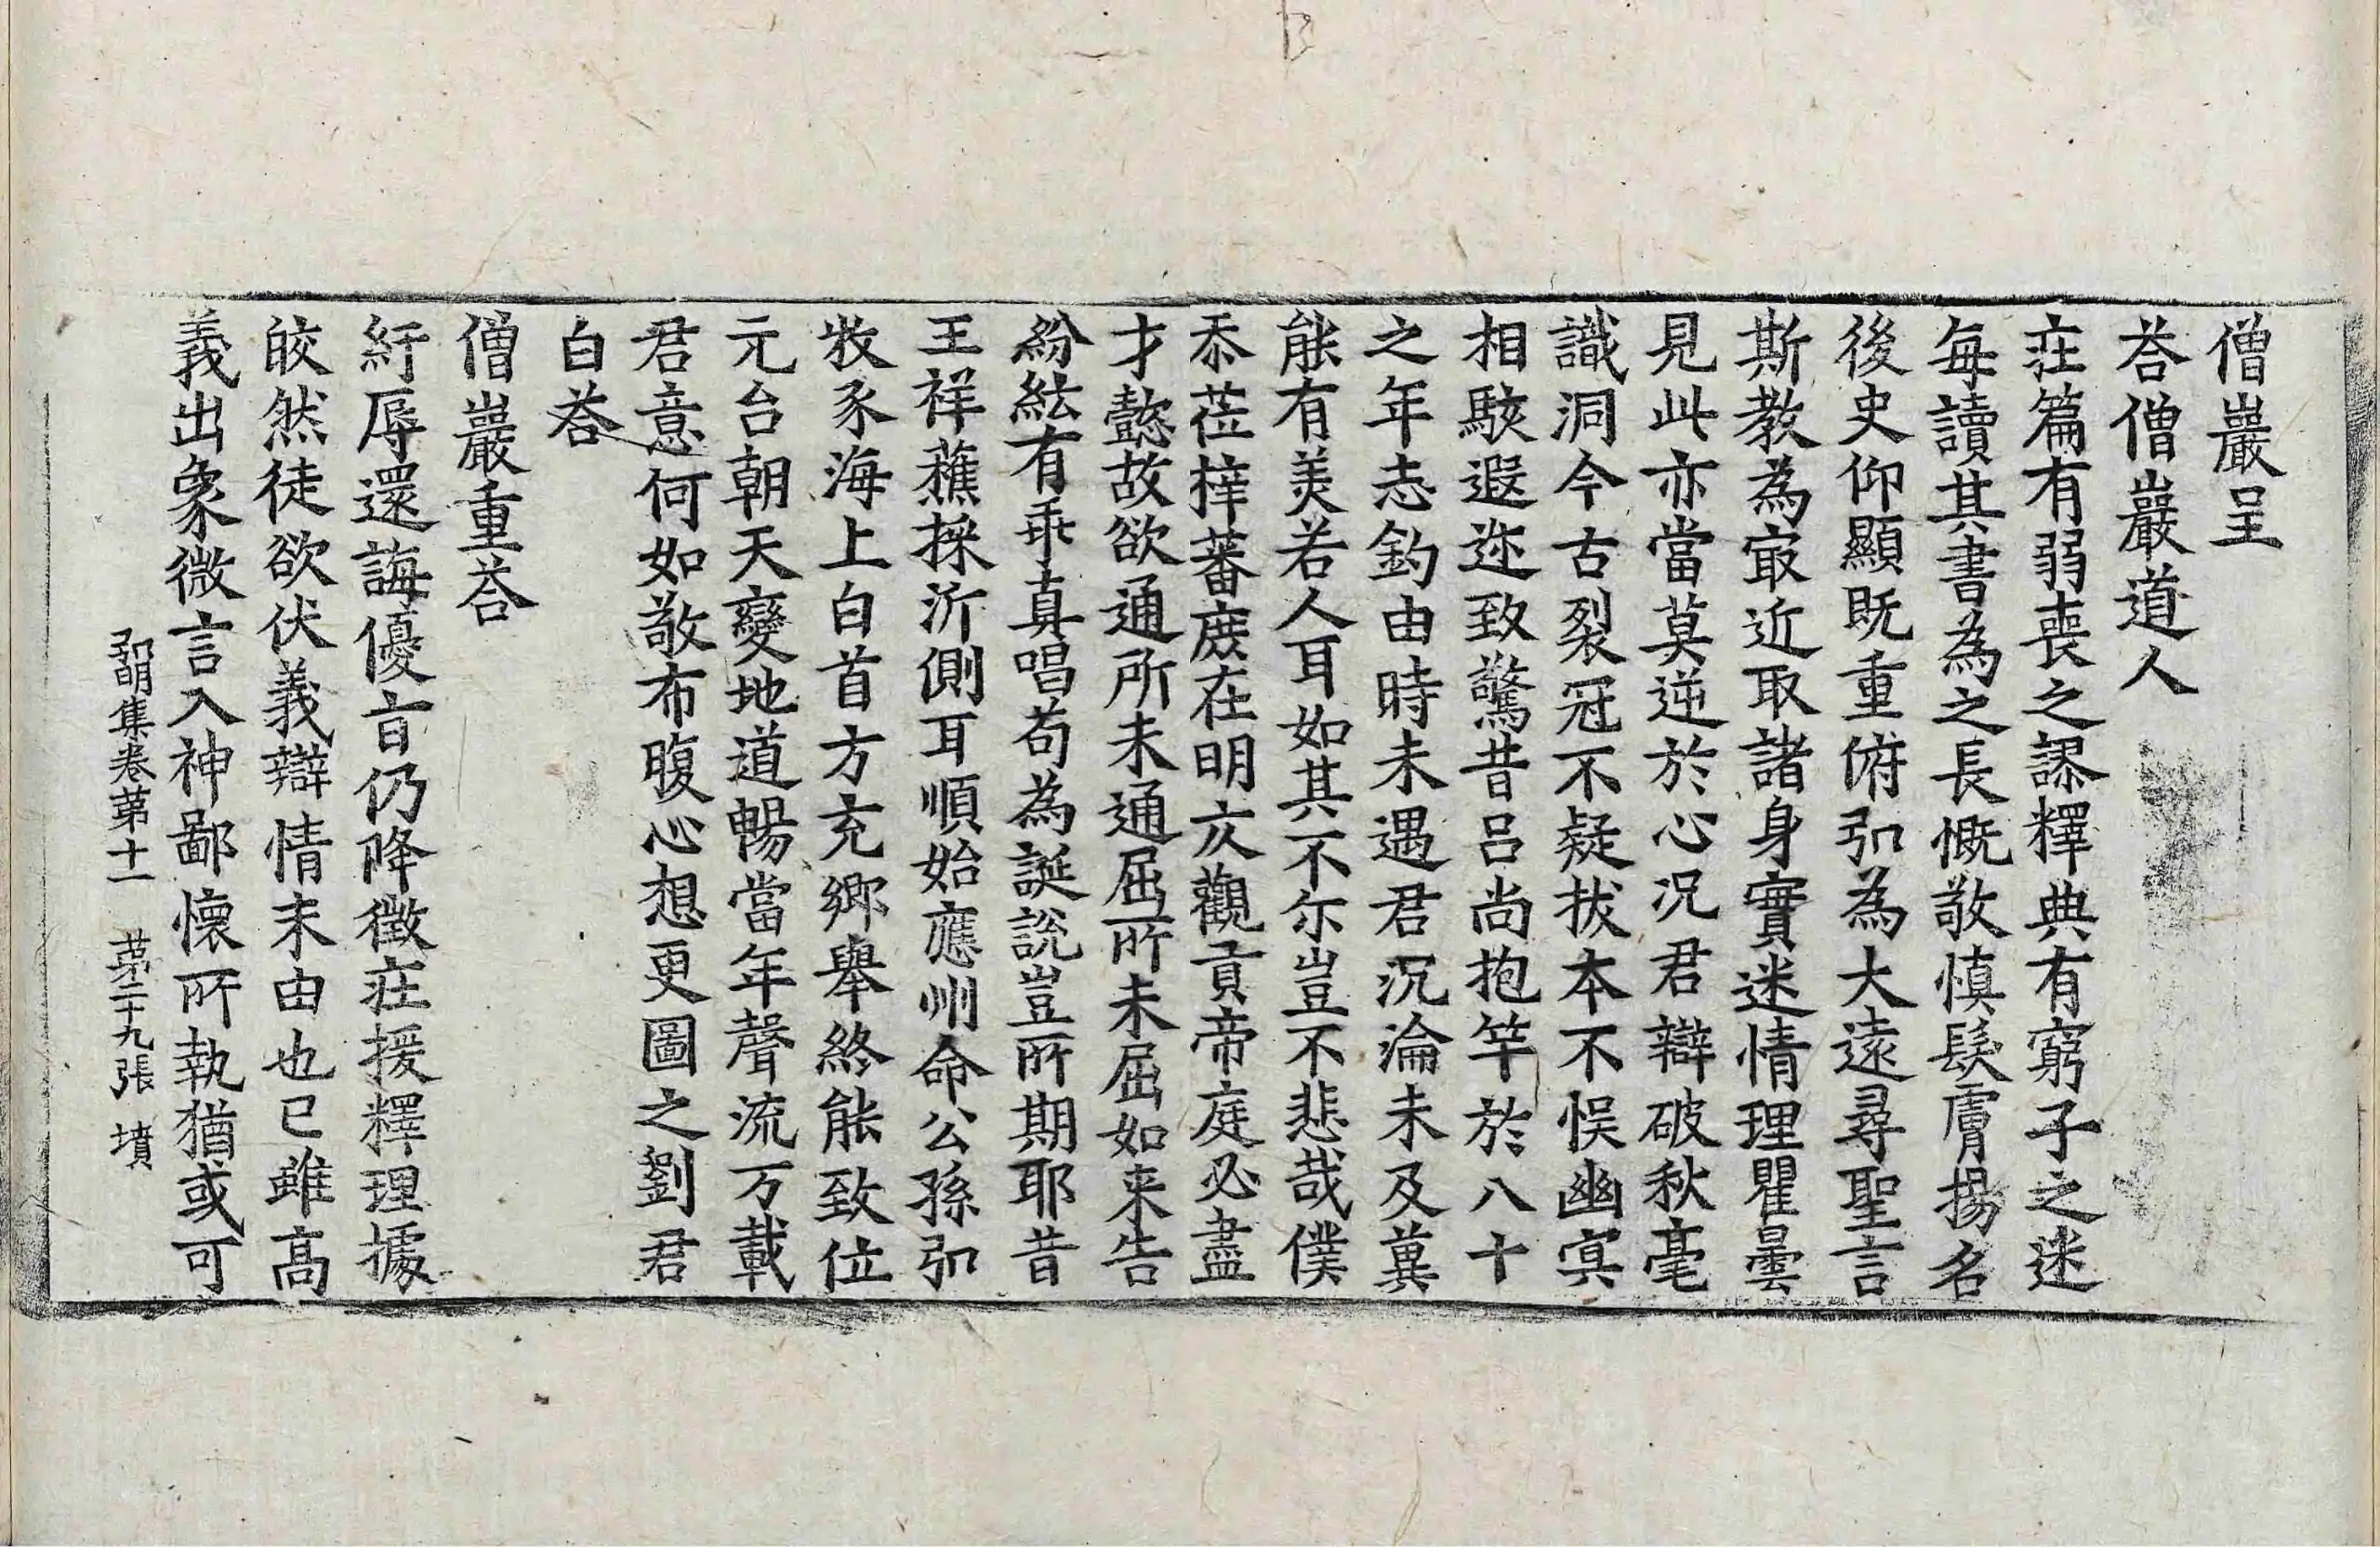 僧巖呈
荅僧巖道人
莊篇有弱喪之謬釋典有窮子之迷
每讀其書為之長慨敬慎髮膚揚名
後史仰顯既重俯弘為大遠尋聖言
斯教為㝡近取諸身實迷情理瞿曇
見此亦當莫逆於心况君辯破秋毫
識洞今古裂冠不疑拔本不悮幽㝠
相駭遐迩致驚昔吕尚抱竿於八十
之年志釣由時未遇君沉淪未及䔬
能有美若人耳如其不尓豈不悲哉僕
忝莅梓蕃庶在明仄觀貢帝庭必盡
才懿故欲通所未通屈所未屈如来告
紛紜有乖真唱苟為誕說豈所期耶昔
王祥蘓採沂側耳順始應州命公孫弘
牧豕海上白首方充鄉舉終能致位
元台朝天變地道暢當年聲流万載
君意何如敬布腹心想更圖之劉君
白荅
僧巖重荅
紆辱還誨優旨仍降徵莊援釋理據
皎然徒欲伏義辯情未由也已雖高
義出象微言入神鄙懷所執猶或可
弘明集卷第十一 第二十九張 墳